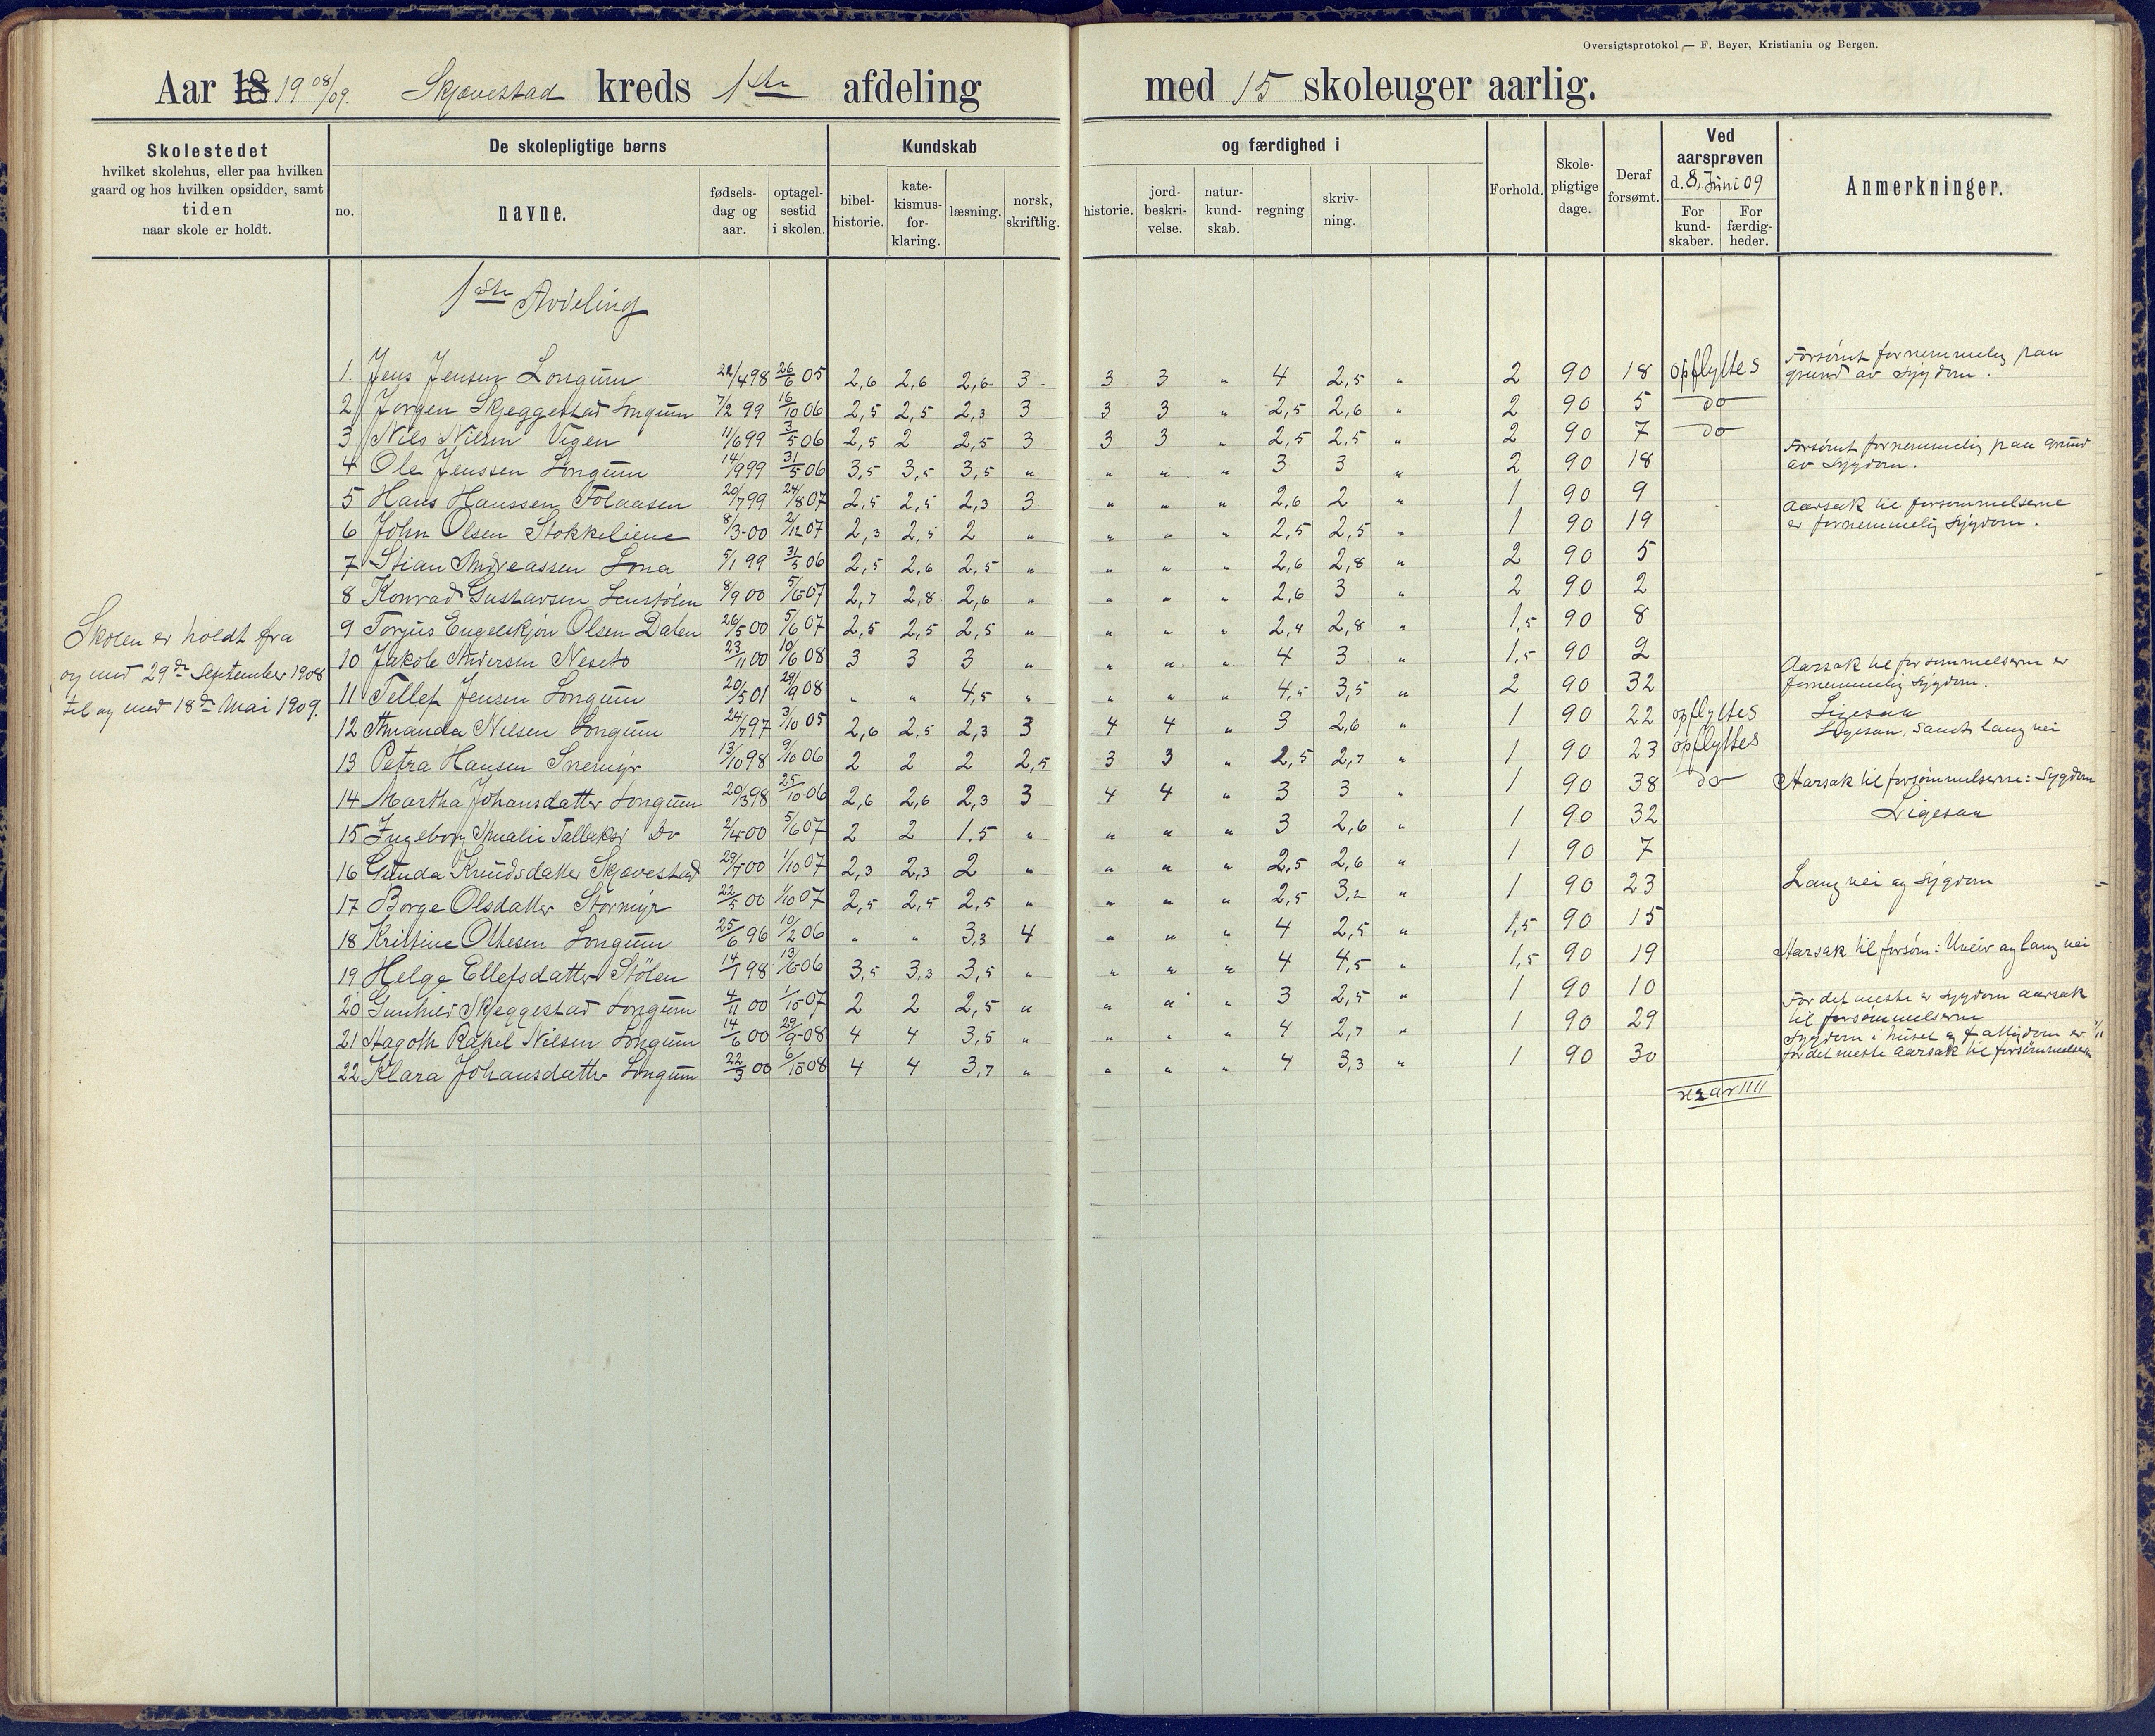 Oversigtsprotokol — F. Beyer, Kristiania og Bergen.
Aar 18 19 08/09. Skjævestad kreds 1ste afdeling med 15 skoleuger aarlig.
Skolestedet
hvilket skolehus, eller paa hvilken
gaard og hos hvilken opsidder, samt
tiden
naar skole er holdt.
De skolepligtige børns
no.
navne.
fødsels-
dag og
aar.
optagel-
sestid
i skolen.
Kundskab
bibel-
historie.
kate-
kismus-
for-
klaring.
læsning.
norsk,
skriftlig.
og færdighed i
historie.
jord-
beskri-
velse.
natur-
kund-
skab.
regning
skriv-
ning.
Forhold.
Skole-
pligtige
dage.
Deraf
forsømt.
Ved
aarsprøven
d. 8. Juni 09
For
kund-
skaber.
For
færdig-
heder.
Anmerkninger.
1ste Avdeling
Skolen er holdt fra
og med 29de September 1908
til og med 18de Mai 1909.
1. Jens Jensen Longum 498 26/6 05 2,6 2,6 2,6 3 3 3 " 4 2,5 " 2 90 18 opflyttes Forsømt fornemmelig paa
grund av sygdom.
2 Jørgen Skjeggestad Longum 7/2 99 16/10 06 2,5 2,5 2,3 3 3 3 " 2,5 2,6 " 2 90 5 do
3 Nils Nilsen Vigen 11/6 99 3/5 06 2,5 2 2,5 3 3 3 " 2,5 2,5 " 2 90 7 do
4 Ole Jenssen Longum 14/9 99 31/5 06 3,5 3,5 3,5 " " " " 3 3 " 2 90 18 Forsømt fornemmelig paa grund
av sygdom.
5 Hans Hanssen Folaasen 20/7 99 24/8 07 2,5 2,5 2,3 3 " " " 2,6 2 " 1 90 9
6 John Olsen Stokkeliene 8/3-00 2/12 07 2,3 2,5 2 " " " " 2,5 2,5 " 1 90 19 Aarsak til forsømmelserne
er fornemmelig sygdom.
7 Stian Andreassen Lona 5/1 99 31/5 06 2,5 2,6 2,5 " " " " 2,6 2,8 " 2 90 5
8 Konrad Gustavsen 8/9 00 5/6 07 2,7 2,8 2,6 " " " " 2,6 3 " 2 90 2
9 Torjus Engelskjøn Olsen Dalen 26/5 00 5/6 07 2,5 2,5 2,5 " " " " 2,4 2,8 " 1,5 90 8
10 Jakob Andersen Neseto 23/11 00 10/6 08 3 3 3 " " " " 4 3 " 1,5 90 2
11 Tellef Jensen Longum 20/5 01 29/9 08 " " 4,5 " " " " 4,5 3,5 " 2 90 32 Aarsak til forsømmelserne er
fornemmelig sygdom.
12 Amanda Nilsen Longum 24/7 97 3/10 05 2,6 2,5 2,3 3 4 4 " 3 2,6 " 1 90 22 opflyttes Ligesaa
13 Petra Hansen Snemyr 13/10 98 9/10 06 2 2 2 2,5 3 3 " 2,5 2,7 " 1 90 23 opflyttes Ligesaa, samt lang vei
14 Martha Johansdatter Longum 20/3 98 25/10 06 2,6 2,6 2,3 3 4 4 " 3 3 " 1 90 38 do Aarsak til forsømmelserne: Sygdom
15 Ingeborg Amalie Tallaksd Do 2/4 00 5/6 07 2 2 1,5 " " " " 3 2,6 " 1 90 32 Ligesaa
16 Gunda Knudsdatter Skjævestad 29/7 00 1/10 07 2,3 2,3 2 " " " " 2,5 2,6 " 1 90 7
17 Borge Olsdatter Stormyr 22/5 00 1/10 07 2,5 2,5 2,5 " " " " 2,5 3,2 " 1 90 23 Lang vei og sygdom
18 Kristine Olsen Longum 25/6 96 10/2 06 " " 3,3 4 " " " 4 2,5 " 1,5 90 15
19 Helge Ellefsdatter Stölen 14/1 98 13/6 06 3,5 3,3 3,5 " " " " 4 4,5 " 1,5 90 19 Aarsak til forsøm: Uveir og lang vei
20 Gunhild Skjeggestad Longum 4/11 00 1/10 07 2 2 2,5 " " " " 3 2,5 " 1 90 10
21 Hagoth Rakel Nilsen Longum 14/6 00 29/9 08 4 4 3,5 " " " " 4 2,7 " 1 90 29 For det meste er sygdom aarsak
til forsømmelserne
22 Klara Johansdatter Longum 22/3 00 6/10 08 4 4 3,7 " " " " 4 3,3 " 1 90 30 Sygdom i huset og fattigdom er
for det meste aarsak til forsømmelserne